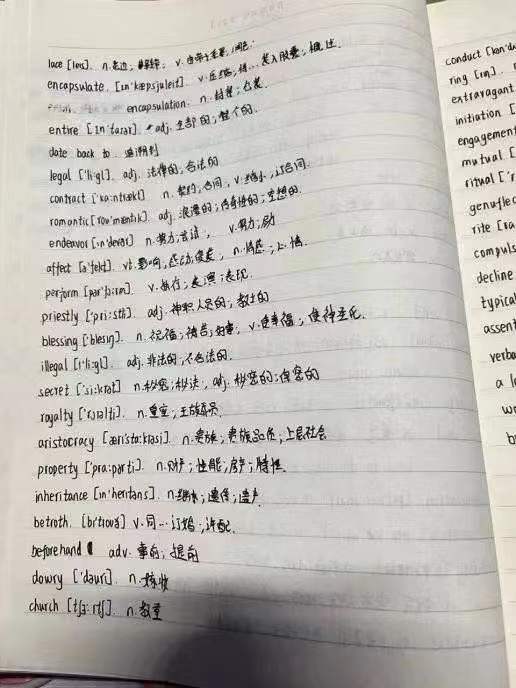 lace [leɪs]. n. 花边; v.
encapsulate. [ɪn'kæpsjuleɪt] v. 压缩; 将…装入胶囊; 概述.
encapsulation. n. 封装; 包装
entire [ɪn'taɪər] adj. 全部的; 整个的.
date back to. 追溯到
legal ['li:gl]. adj. 法律的, 合法的
contract ['kɑ:ntrækt] n. 契约; 合同, v. 缩小, 订合同.
romantic [rəʊ'mæntɪk] adj. 浪漫的; 传奇性的; 空想的.
endeavor [ɪn'devər] n. 努力; 尝试, v. 努力;
affect [ə'fekt]. vt. 影响, n. 情感;
perform [pər'fɔ:rm]. v. 执行; 表演; 表现.
priestly ['pri:stli] adj. 神职人员的; 教士的
blessing ['blesɪŋ] n. 祝福; 祷告; v. 使幸福;
illegal [ɪ'li:gl]. adj. 非法的, 不合法的.
secret ['si:krət] n. 秘密; 秘诀, adj. 秘密的; 保密的
royalty ['rɔɪəlti]. n. 皇室; 王族成员.
aristocracy [ærɪ'stɑ:krəsi] n. 贵族; 贵族品质; 上层社会
property ['prɑ:pərti]. n. 财产; 性能; 房产; 特性.
inheritance [ɪn'herɪtəns]. n. 继承; 遗传; 遗产.
betroth. [bɪ'trəʊð] v. 同…订婚; 许配.
beforehand adv. 事前; 提前
dowry ['daʊri]. n. 嫁妆
church [tʃɜ:rtʃ]. n. 教堂
conduct [kən'dʌ
ring [rɪŋ].
extravagant
initiation [
engagement
mutual [
ritual ['r
genuflec
rite [raɪ
compuls
decline
typical
assent
verba
a l